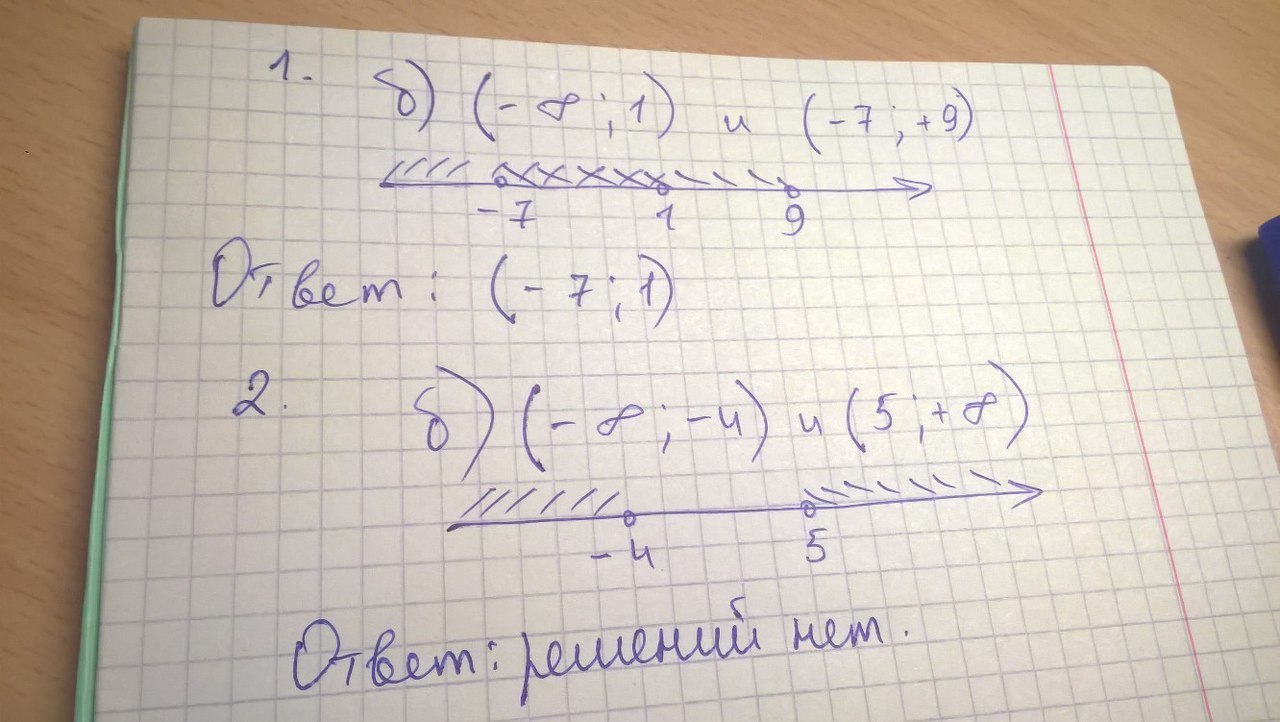 1. б) (-∞; 1) и (-7; +9)
-7 1 9
Ответ: (-7; 1)
2. б) (-∞; -4) и (5; +∞)
-4 5
Ответ: решений нет.